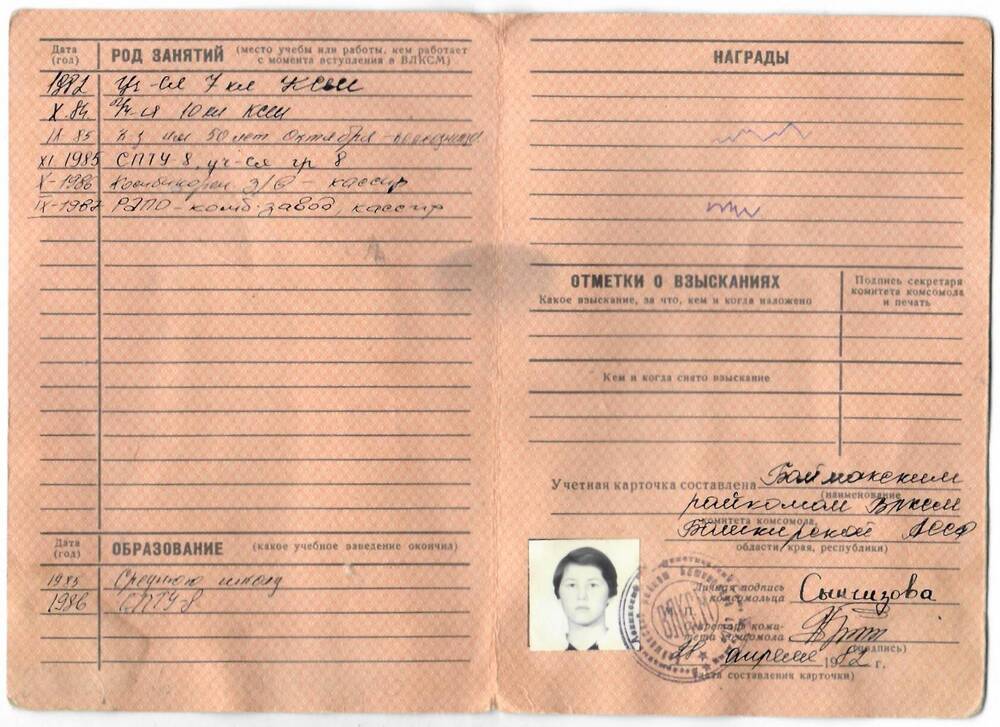 Дата (год)
РОД ЗАНЯТИЙ (место учебы или работы, кем работает с момента вступления в ВЛКСМ)
1982 Уч-ся 7 кл КСШ
X.84 Уч-ся 10 кл КСШ
IX 85 К-з им 50 лет Октября -
XI 1985 СПТУ-8, уч-ся гр 8
X-1986 З/О - кассир
IX-1987 РАПО - комб. завод, кассир
Дата (год)
ОБРАЗОВАНИЕ (какое учебное заведение окончил)
1985 Среднюю школу
1986 СПТУ-8
НАГРАДЫ
ОТМЕТКИ О ВЗЫСКАНИЯХ
Какое взыскание, за что, кем и когда наложено
Подпись секретаря комитета комсомола и печать
Кем и когда снято взыскание
Учетная карточка составлена Баймакским
(наименование
райкомом ВЛКСМ
комитета комсомола,
Башкирской АССР
области, края, республики)
Личная подпись комсомольца Сынгизова
Секретарь комитета комсомола
(подпись)
28 апреля 1982 г.
(дата составления карточки)
ВЛКСМ